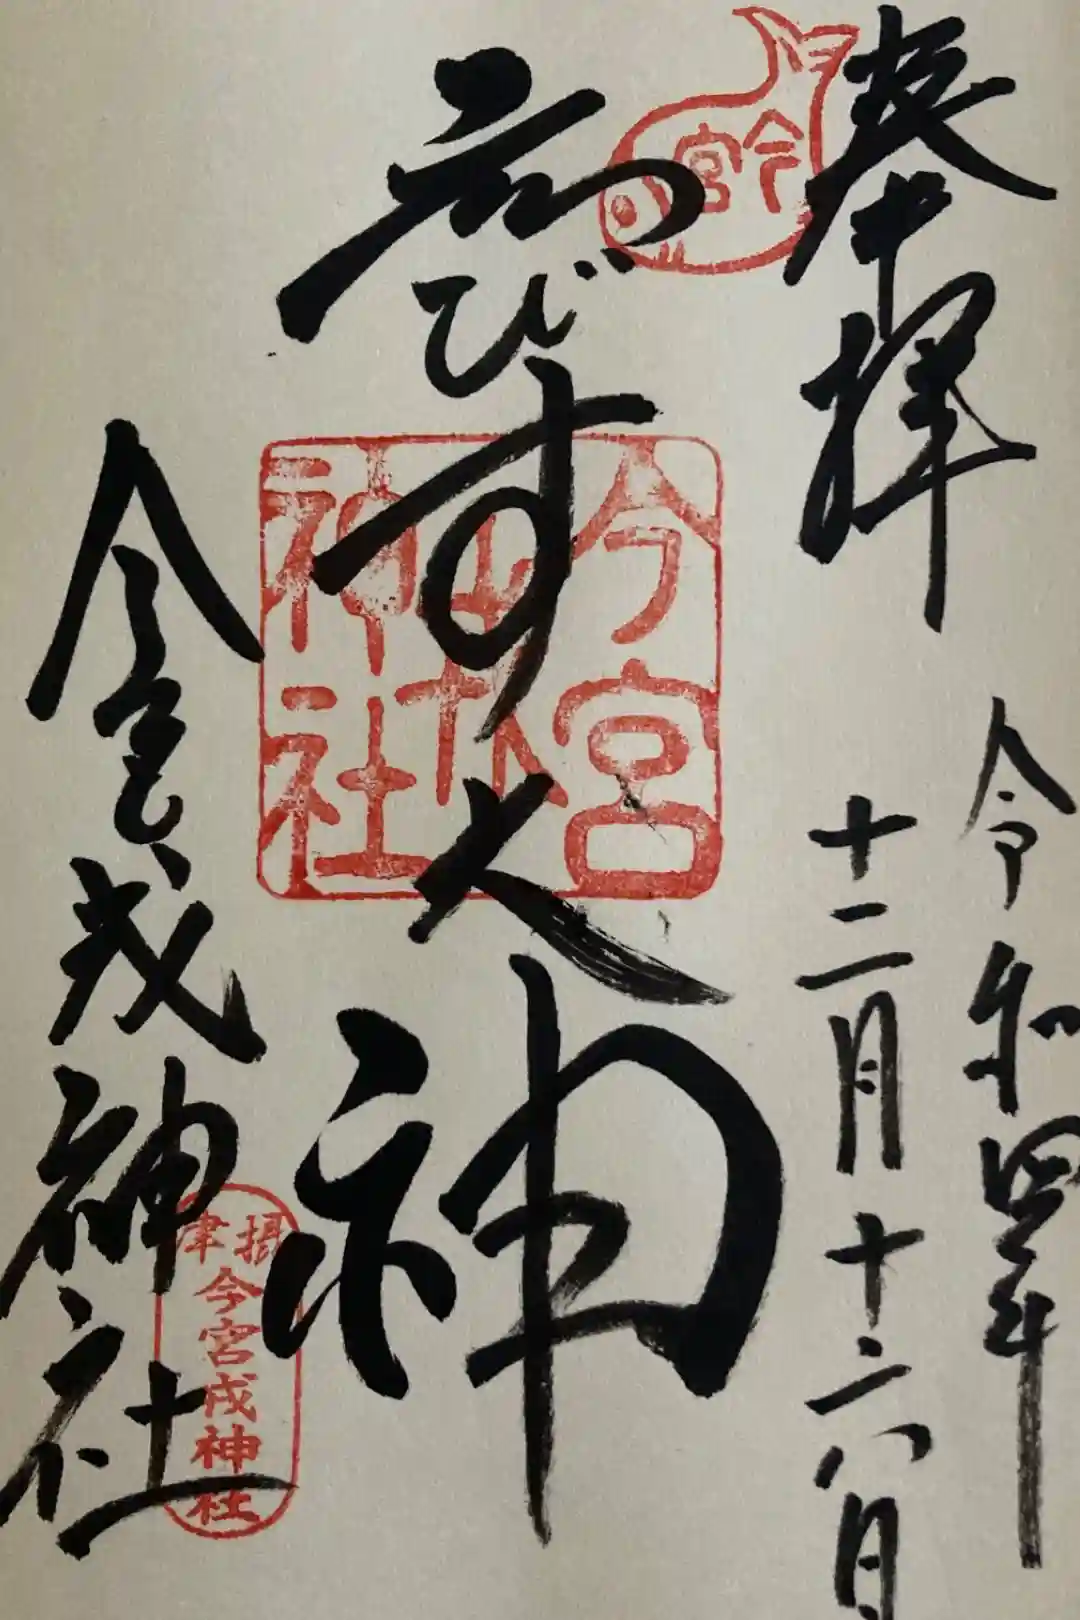 奉拝
令和四年
十二月十六日
今宮
ゑびす大神
今宮
戎
神社
今宮戎神社
摂津
今宮戎神社